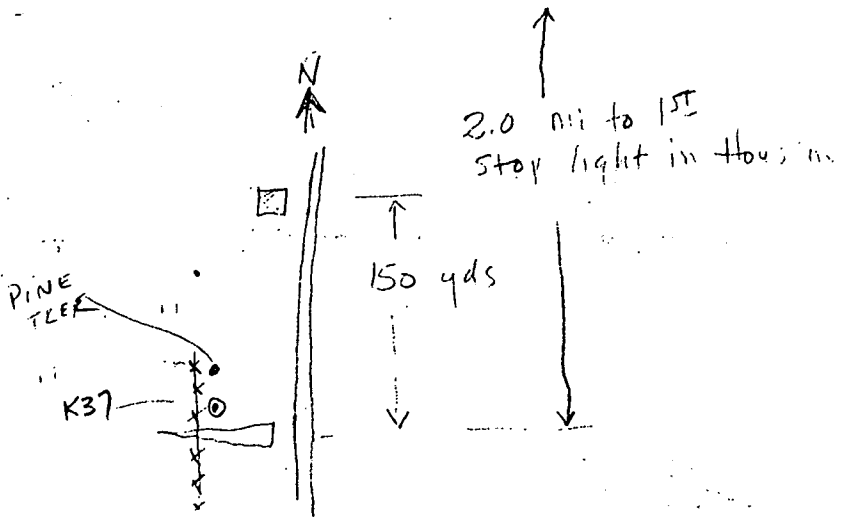 N
2.0 mi to 1ST
stop light in
150 yds
PINE
TREE
K37